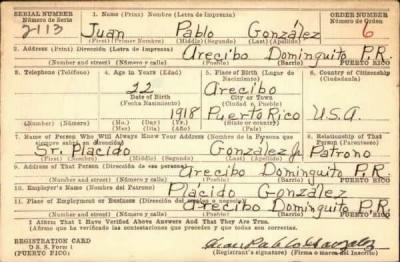 SERIAL NUMBER 1. Name (Print) Nombre (Letra de Imprenta) ORDER NUMBER
Número de Serie Número de Orden
2113 Juan Pablo González 6
(First) (Primer Nombre) (Middle) (Segundo) (Last) (Apellido)
2. Address (Print) Dirección (Letra de Imprenta)
Arecibo Dominguito P.R.
(Number and street) (Número y calle) (Town) (Pueblo) (Barrio) PUERTO RICO
3. Telephone (Teléfono) 4. Age in Years (Edad) 5. Place of Birth (Lugar de Nacimiento) 6. Country of Citizenship (Ciudadanía)
22 Arecibo
Date of Birth City or Town
(Fecha Nacimiento) (Ciudad o Pueblo)
1918 Puerto Rico U.S.A.
(Number) (Número) (Mo.) (Day) (Yr.)
(Mes) (Día) (Año)
7. Name of Person Who Will Always Know Your Address (Nombre de la Persona que siempre sabrá su dirección) 8. Relationship of That Person (Parentesco)
Sr. Placido González Jr. Patrono
(First) (Nombre) (Middle) (Segundo) (Last) (Apellido)
9. Address of That Person (Dirección de esa persona)
Arecibo Dominguito P.R.
(Number and street) (Número y calle) (Town) (Pueblo) (Barrio) PUERTO RICO
10. Employer's Name (Nombre del Patrono)
Placido González
11. Place of Employment or Business (Dirección del empleo o negocio)
Arecibo Dominguito P.R.
(Number and street) (Número y calle) (Town) (Pueblo) (Barrio) PUERTO RICO
I Affirm That I Have Verified Above Answers And That They Are True.
(Afirmo que he verificado las contestaciones que preceden y que todas son ciertas)
REGISTRATION CARD
D. S. S. Form 1
(PUERTO RICO) (Registrant's signature) (Firma o marca del Inscrito)